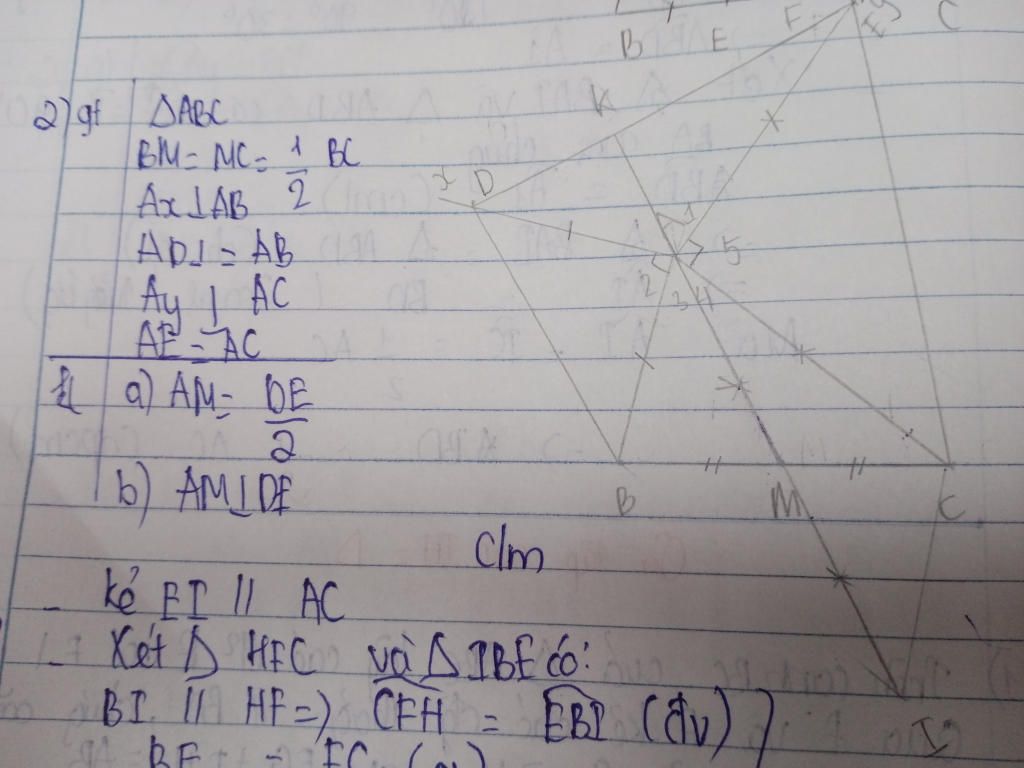 B E F C
2) gt ΔABC
BM = MC = 1/2 BC
Ax ⊥ AB
AD ⊥ = AB
Ay ⊥ AC
AE = AC
kl a) AM = DE/2
b) AM ⊥ DE
x D K E
1
2 3 4 5
B M C
I
C/m
- kẻ EI // AC
- Xét Δ HFC và Δ IBE có:
BI // HF => CFH = EBI (đv)
BE = FC